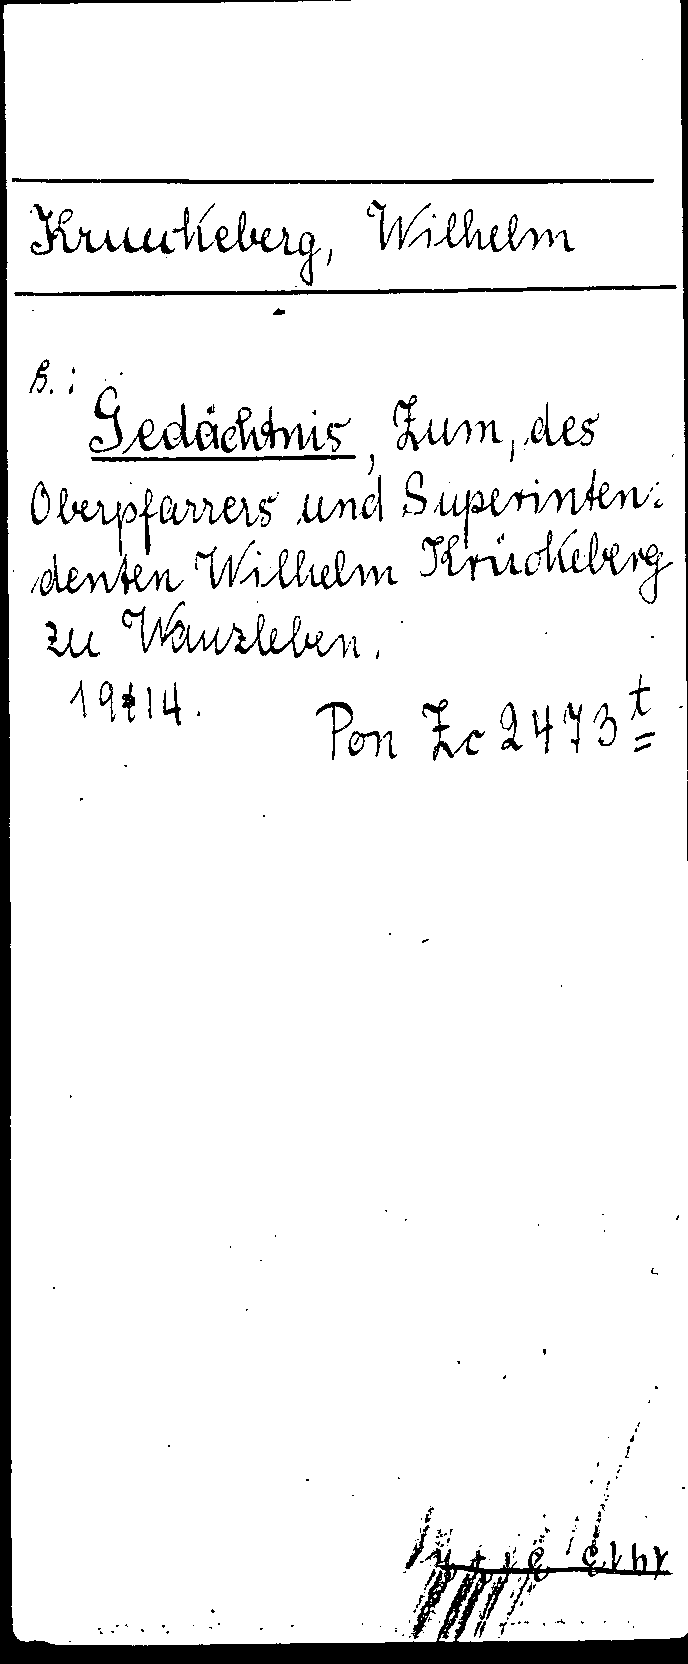 Kruckeberg, Wilhelm
B.:
Gedächtnis, Zum, des
Oberpfarrers und Superinten:
denten Wilhelm Krückeberg
zu Wanzleben.
1914.
Pon Zc 2473 t